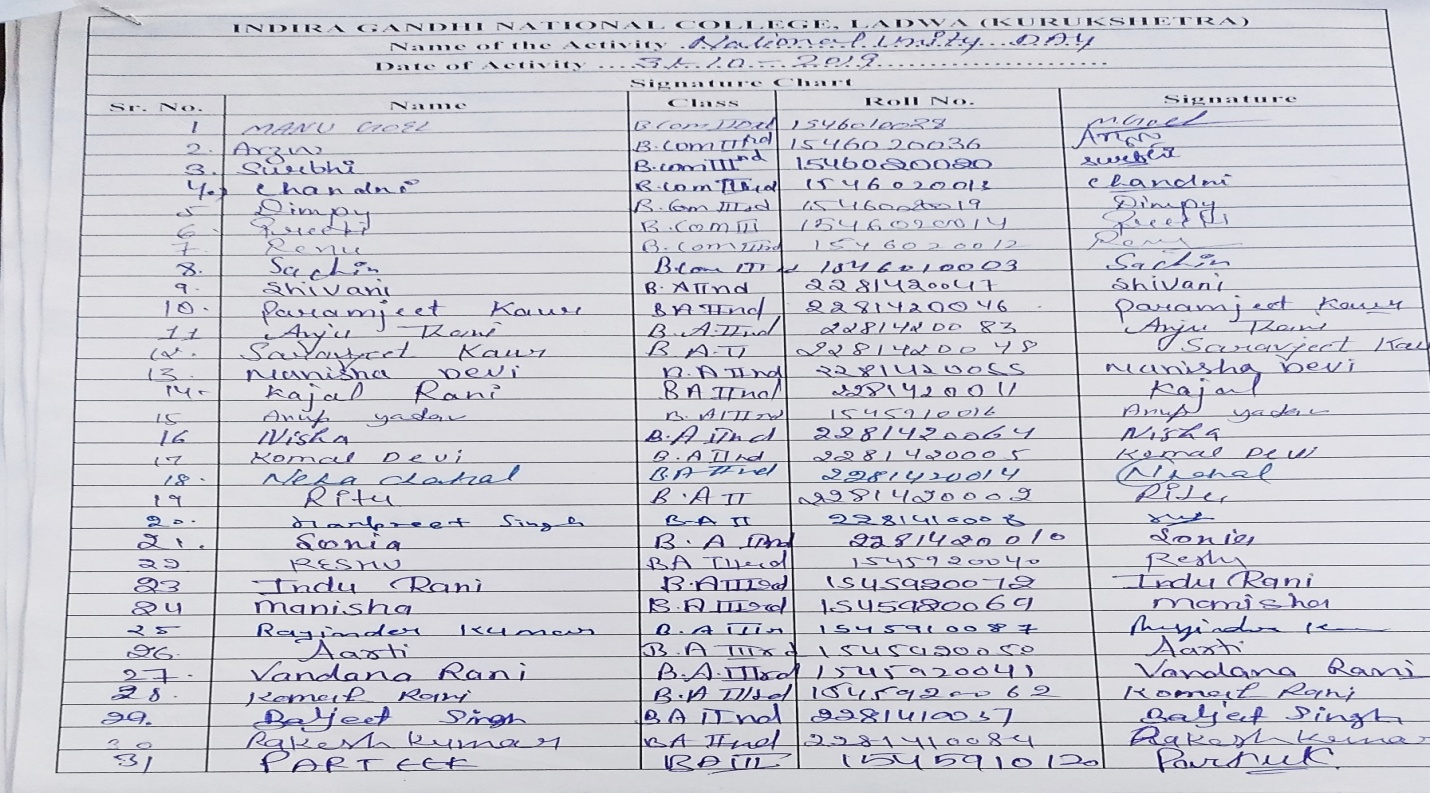 INDIRA GANDHI NATIONAL COLLEGE, LADWA (KURUKSHETRA)
Name of the Activity National Unity DAY
Date of Activity 31.10.-2019
Signature Chart
Sr. No. Name Class Roll No. Signature
1 MANU GOEL B.Com IIIrd 1546010028 MGoel
2. Arzu B.com IIIrd 1546020036
3. Surbhi B.com III nd 1546020020 surbhi
4. Chandni B.com IIIrd 1546020013 Chandni
5 Dimpy B.Com IIIrd 1546020019 Dimpy
6 Preeti B.Com III 1546020014 Preeti
7. Renu B.Com IIIrd 1546020012 Renu
8. Sachin B.Com III rd 1546010003 Sachin
9. Shivani B.A IInd 2281420047 Shivani
10. Paramjeet Kaur BA IInd 2281420046 Paramjeet Kaur
11 Anju Rani B.A.IInd 2281420083 Anju Rani
12. Saravjeet Kaur B.A.II 2281420048 Saravjeet Kau
13. Manisha Devi B.A IInd 2281420055 Manisha Devi
14. Kajal Rani BA IInd 2281420011 Kajal
15 Anup yadav B.A IIIrd 1545910016 Anup yadav
16 Nisha B.A IInd 2281420064 Nisha
17 Komal Devi B.A IInd 2281420005 Komal Devi
18. Neha B.A IInd 2281420014
19 Ritu B.A II 2281420002 Ritu
20. Manpreet Singh B.A II 2281410008
21. Sonia B.A IInd 2281420010 Sonia
22 RESHU BA IIIrd 1545920040 Reshu
23 Indu Rani B.A IIIrd 1545920072 Indu Rani
24 Manisha B.A IIIrd 1545920069 Manisha
25 Rajinder Kumar B.A III 1545910087 Rajinder
26. Aarti B.A IIIrd 1545920050 Aarti
27. Vandana Rani B.A.IIIrd 1545920041 Vandana Rani
28. Komal Rani B.A IIIrd 1545920062 Komal Rani
29. Baljeet Singh BA IInd 2281410037 Baljeet Singh
30 Rakesh Kumar BA IInd 2281410084 Rakesh Kumar
31 PARTEEK BA III 1545910120 Parteek